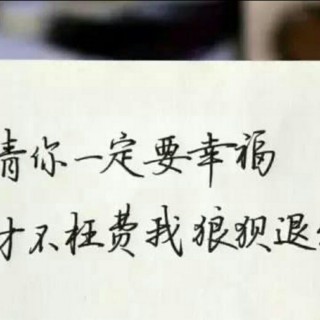 请你一定要幸福
才不枉费我狼狈退